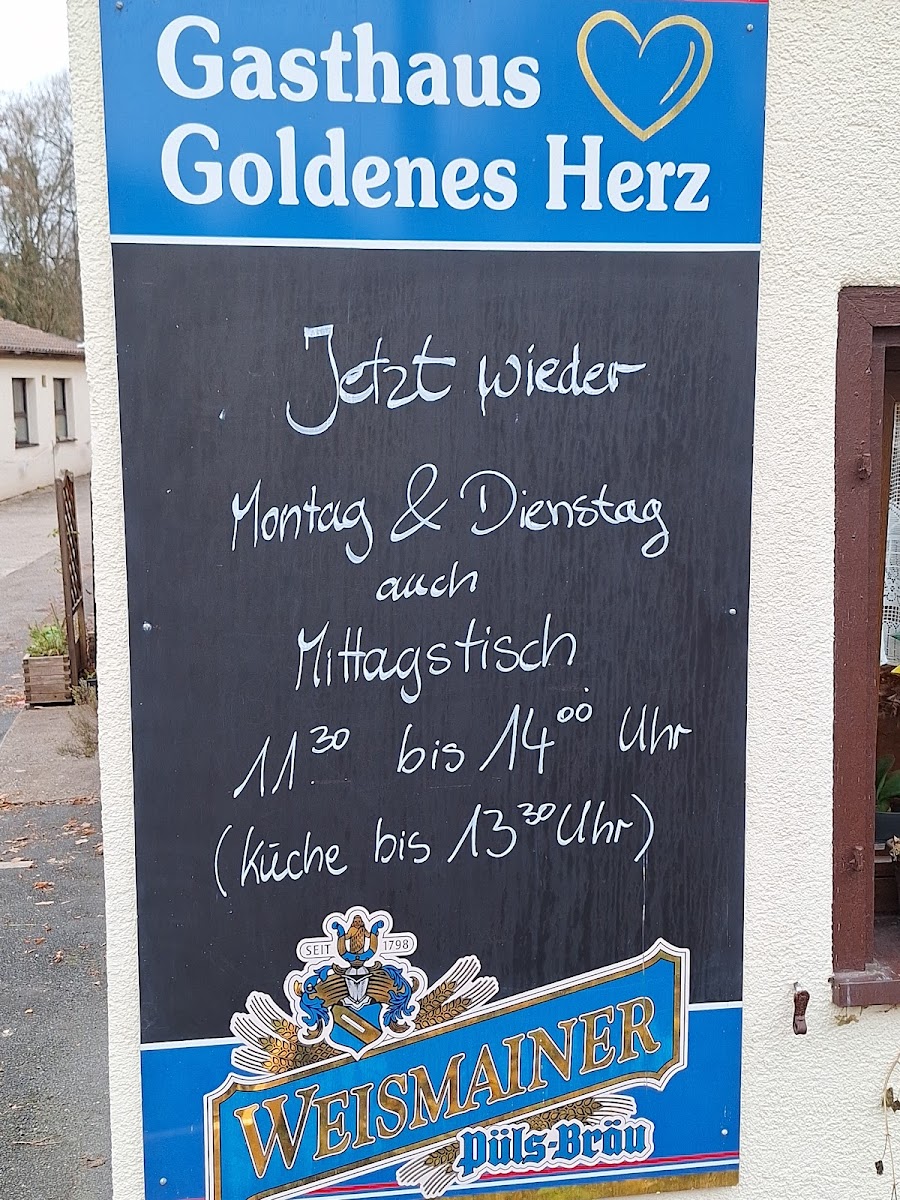 Gasthaus
Goldenes Herz
Jetzt wieder
Montag & Dienstag
auch
Mittagstisch
11³⁰ bis 14⁰⁰ Uhr
(Küche bis 13³⁰ Uhr)
SEIT 1798
WEISMAINER
Püls-Bräu